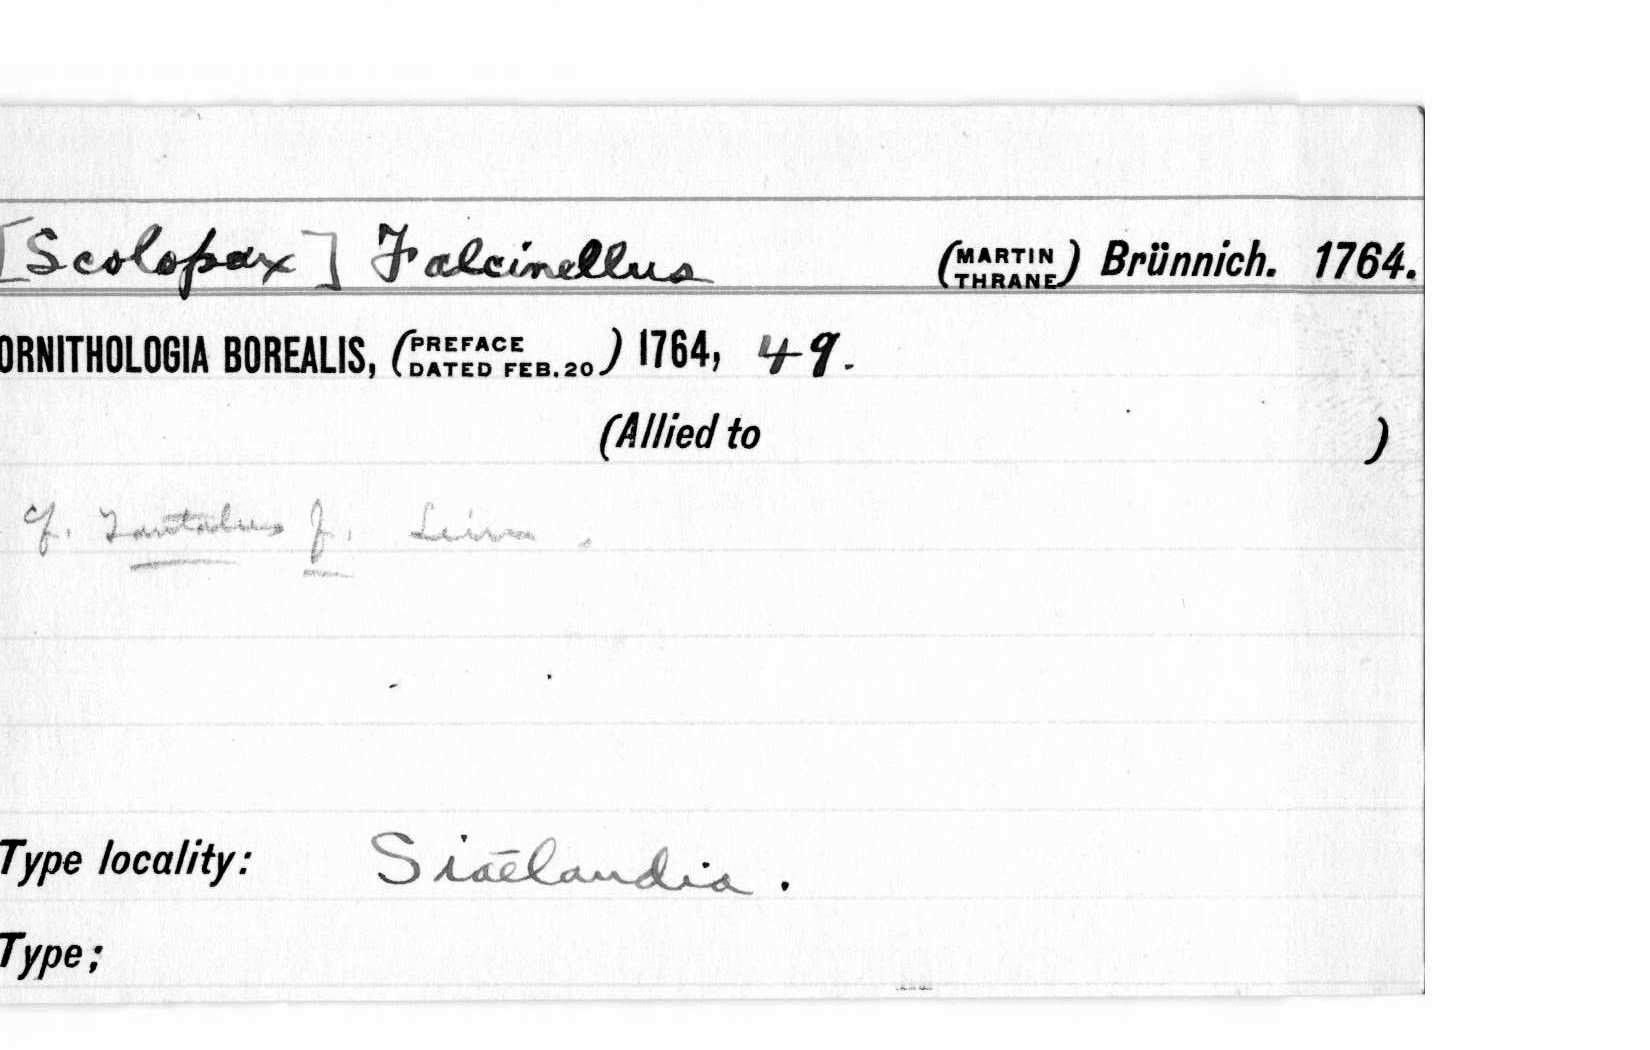 [Scolopax] Falcinellus (MARTIN THRANE) Brünnich. 1764.
ORNITHOLOGIA BOREALIS, (PREFACE DATED FEB. 20) 1764, 49.
(Allied to )
cf. Tantalus f. Linn.
Type locality: Siaelandia.
Type;